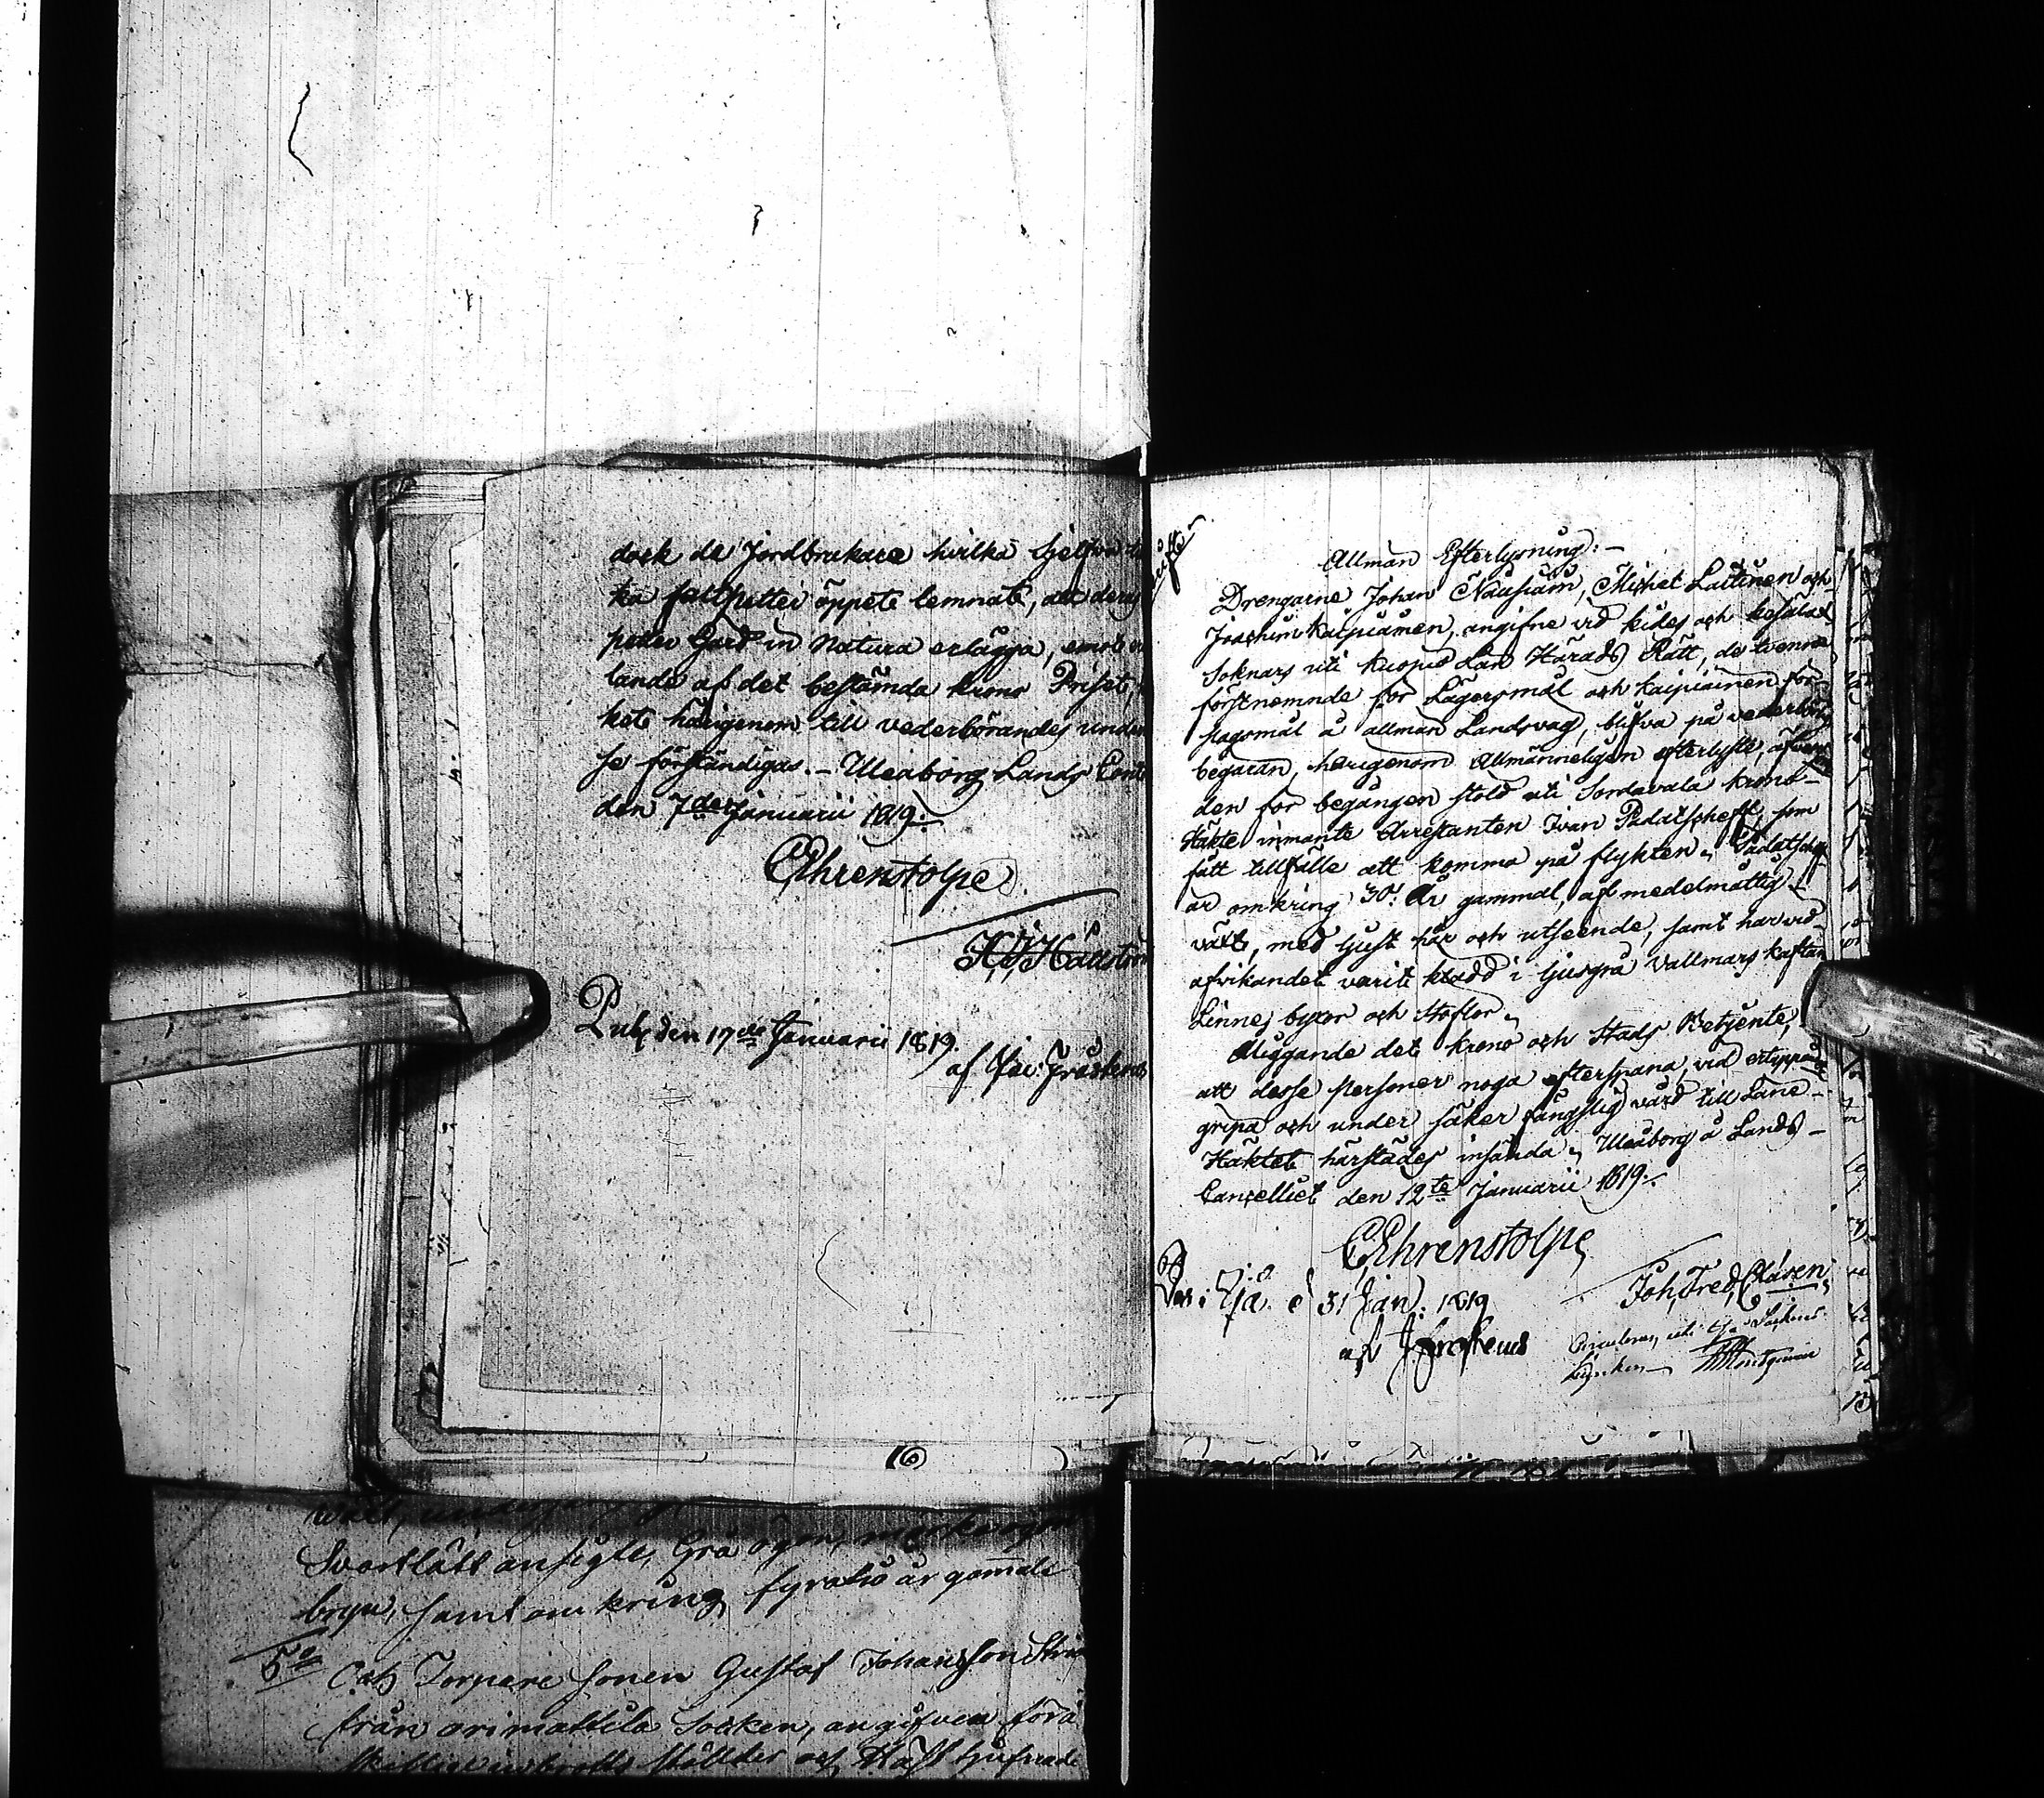 dock de Jordbrukare hvilka sjelfva
ka saltpetter öppete lemnate, att
petter Gärd in Natura erlägga, emot
lande af det bestämda krono Priset,
kete härigenom till vederbörandes under
se förständigas. – Uleåborg Lands
den 7de Januarii 1819.
CEhrenstolpe
Publ. den 17de Januarii 1819.
af
Allmän Efterlysning: –
Drengarne Johan Nausiain, Michel Laitinen och
Joachim Kaipiainen, angifne vid Kides och
Soknars uti Kuopio Län Härads Rätt, de tvenne
förstnemnde för Lägersmål och Kaipiainen för
slagsmål å allmän Landsväg, blifva på vederbörlig
begäran, härigenom Allmänneligen efterlyste, äfven
den för begången stöld uti Sordavala krono-
Häkte inmante Arrestanten Ivan Padatscheff, som
fått tillfälle att komma på flykten.
är omkring 30: År gammal, af medelmåttig
växt, med ljust hår och utseende, samt har vid
afvikandet varit klädd i ljusgrå Vallmars kaftan
Linnes byxor och stöflor.
Åliggande det krono och Stads Betjente,
att desse personer noga efterspana, vid ertappande
gripa och under säker fängslig vård till Läne-
Häktet härstädes insända. Uleåborg å Lands-
Cancelliet den 12te Januarii 1819.
CEhrenstolpe
Joh, Fred, Clásen
i Ijå. d 31 Jan: 1819
af
Svartlätt ansigte, Grå ögon,
bryn, samt omkring fyratio år gamale
5o
Torpare Sonen Gustaf Johansson
från orimattila Socken, angifven förå